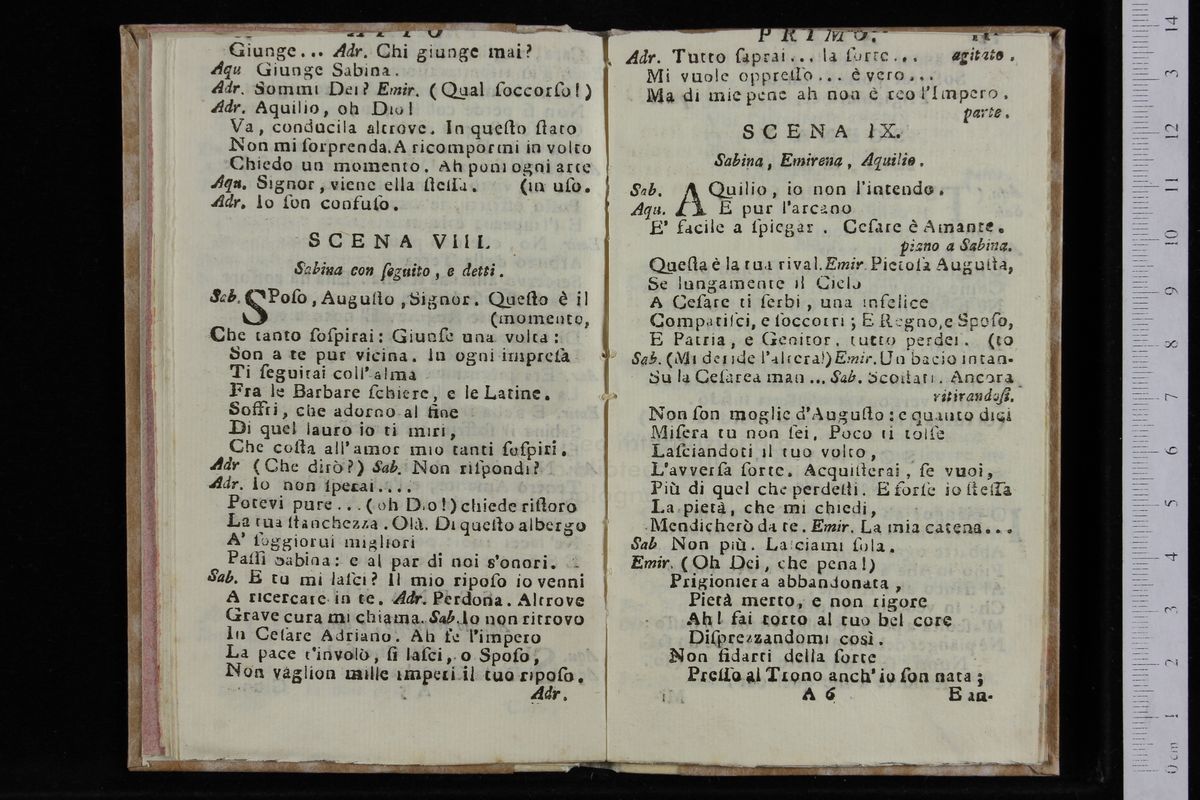 ATTO
Giunge... Adr. Chi giunge mai?
Aqu Giunge Sabina.
Adr. Sommi Dei? Emir. (Qual ſoccorſo!)
Adr. Aquilio, oh Dio!
Va, conducila altrove. In queſto ſtato
Non mi ſorprenda. A ricompormi in volto
Chiedo un momento. Ah poni ogni arte
Aqu. Signor, viene ella ſteſſa. (in uſo.
Adr. Io ſon confuſo.
SCENA VIII.
Sabina con ſeguito, e detti.
Sab. SPoſo, Auguſto, Signor. Queſto è il
(momento,
Che tanto ſoſpirai: Giunſe una volta:
Son a te pur vicina. In ogni impreſa
Ti ſeguitai coll'alma
Fra le Barbare ſchiere, e le Latine.
Soffri, che adorno al fine
Di quel lauro io ti miri,
Che coſta all'amor mio tanti ſoſpiri.
Adr (Che dirò?) Sab. Non riſpondi?
Adr. Io non ſperai....
Potevi pure... (oh Dio!) chiede riſtoro
La tua ſtanchezza. Olà. Di queſto albergo
A' ſoggiorni migliori
Paſſi Sabina: e al par di noi s'onori.
Sab. E tu mi laſci? Il mio ripoſo io venni
A ricercare in te. Adr. Perdona. Altrove
Grave cura mi chiama. Sab. Io non ritrovo
In Ceſare Adriano. Ah ſe l'impero
La pace t'involò, ſi laſci, o Spoſo,
Non vaglion mille imperi il tuo ripoſo.
Adr.
PRIMO. 11
Adr. Tutto ſaprai... la ſorte... agitato.
Mi vuole oppreſſo... è vero...
Ma di mie pene ah non è reo l'Impero.
parte.
SCENA IX.
Sabina, Emirena, Aquilio.
Sab. AQuilio, io non l'intendo.
Aqu. E pur l'arcano
E' facile a ſpiegar. Ceſare è Amante.
piano a Sabina.
Queſta è la tua rival. Emir. Pietoſa Auguſta,
Se lungamente il Cielo
A Ceſare ti ſerbi, una infelice
Compatiſci, e ſoccorri; E Regno, e Spoſo,
E Patria, e Genitor, tutto perdei. (to
Sab. (Mi deride l'altera!) Emir. Un bacio intan-
Su la Ceſarea man... Sab. Scoſtati. Ancora
ritirandoſi.
Non ſon moglie d'Auguſto: e quanto dici
Miſera tu non ſei. Poco ti tolſe
Laſciandoti il tuo volto,
L'avverſa ſorte. Acquiſterai, ſe vuoi,
Più di quel che perdeſti. E forſe io ſteſſa
La pietà, che mi chiedi,
Mendicherò da te. Emir. La mia catena...
Sab Non più. Laſciami ſola.
Emir. (Oh Dei, che pena!)
Prigioniera abbandonata,
Pietà merto, e non rigore
Ah! fai torto al tuo bel core
Diſprezzandomi così.
Non fidarti della ſorte
Preſſo al Trono anch'io ſon nata;
A 6 E an-
14
13
12
11
10
9
8
7
6
5
4
3
2
1
0 cm